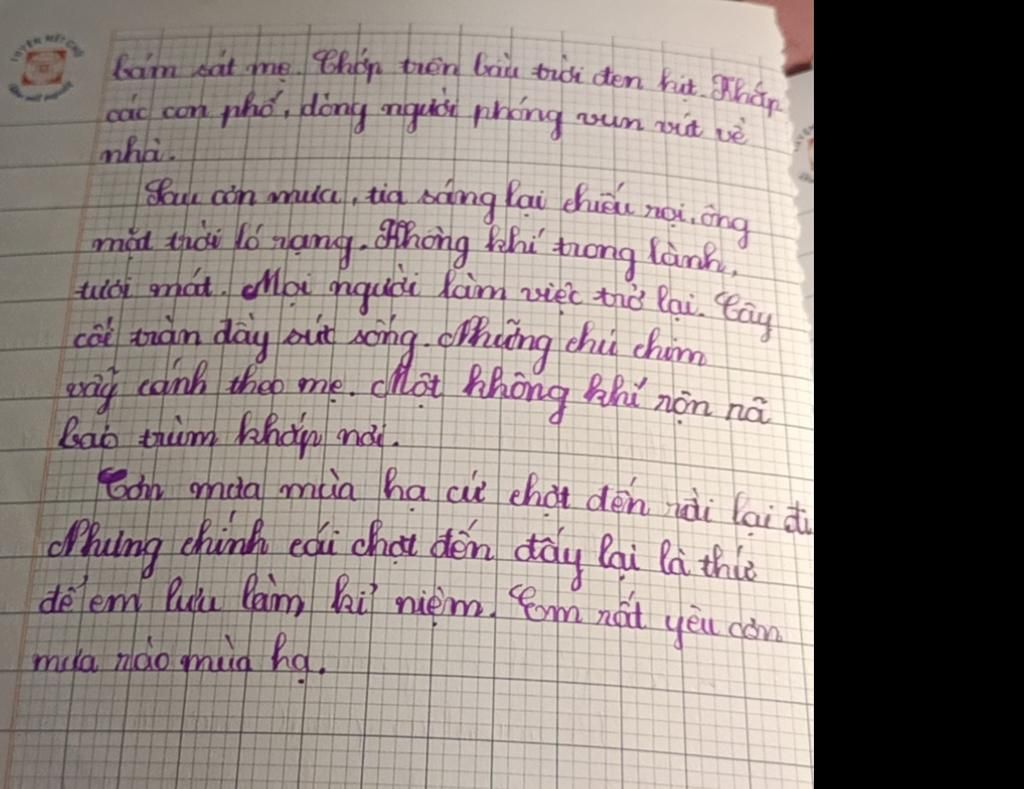 bám sát mẹ. Chớp trên bầu trời đen kịt. Khắp
các con phố, dòng người phóng vun vút về
nhà.
Sau cơn mưa, tia sáng lại chiếu rọi, ông
mặt trời ló rạng. Không khí trong lành,
tươi mát. Mọi người làm việc trở lại. Cây
cối tràn đầy sức sống. Những chú chim
vẫy cánh theo mẹ. Một không khí rộn rã
bao trùm khắp nơi.
Cơn mưa mùa hạ cứ chợt đến rồi lại đi
Nhưng chính cái chợt đến đấy lại là thứ
để em lưu làm kỉ niệm. Em rất yêu cơn
mưa rào mùa hạ.